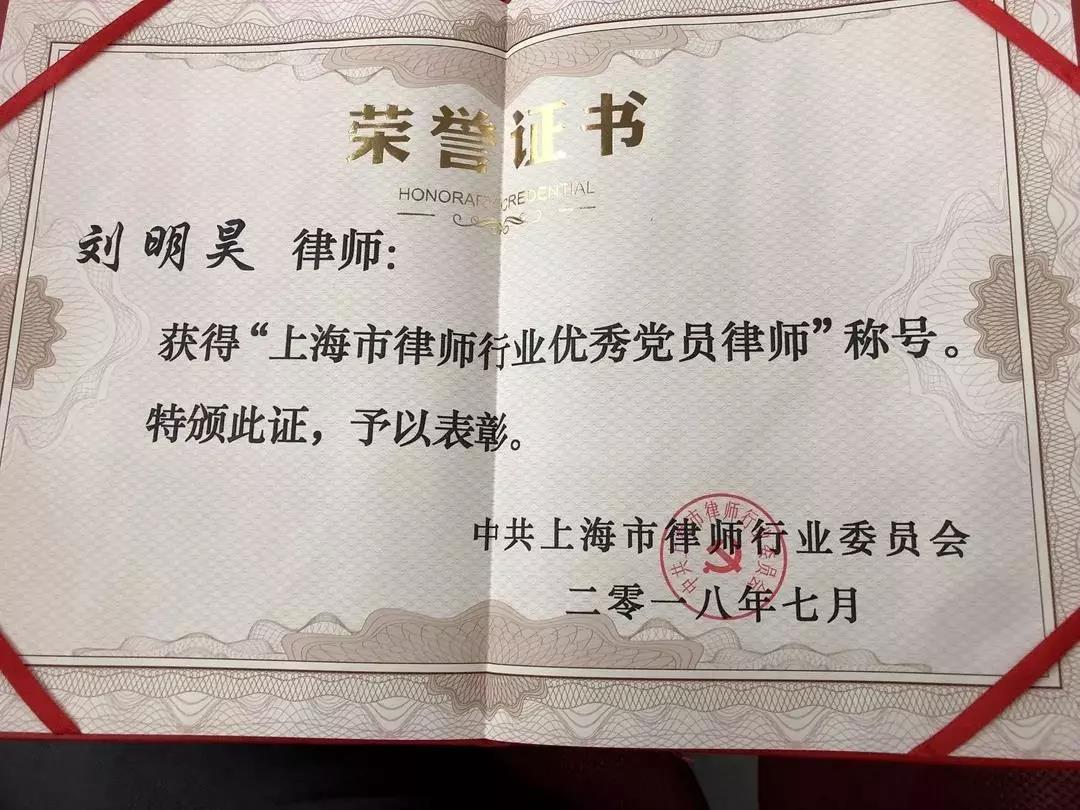 荣誉证书
HONORARY CREDENTIAL
刘明昊 律师：
获得“上海市律师行业优秀党员律师”称号。
特颁此证，予以表彰。
中共上海市律师行业委员会
二零一八年七月